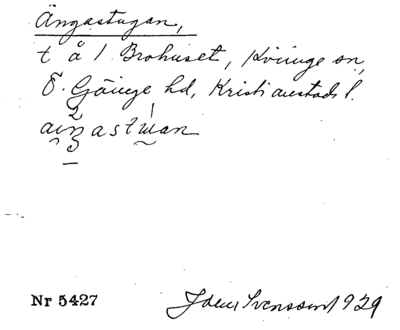 Ängastugan,
t å 1 Brohuset, Kviinge sn,
Ö. Göinge hd, Kristianstads l.
Nr 5427 Svensson 1929